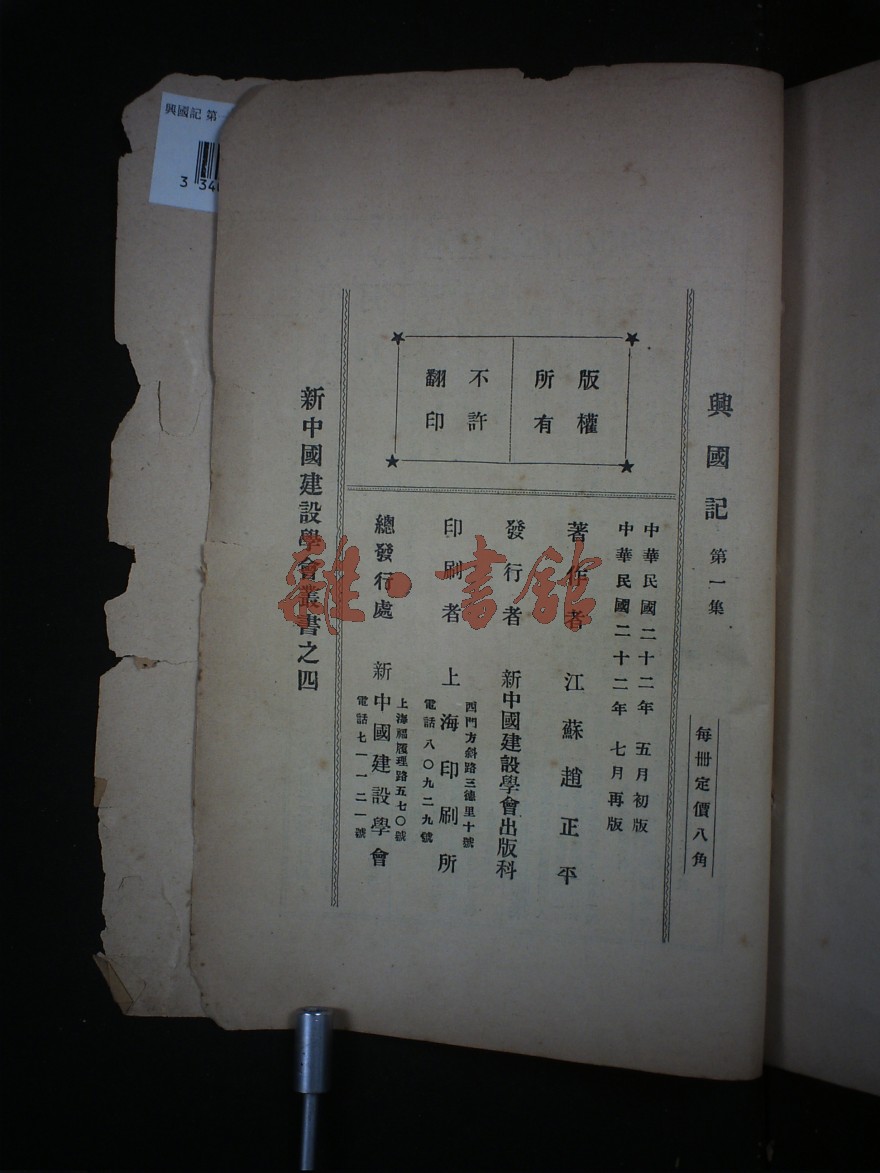 興國記 第一集
每冊定價八角
中華民國二十二年 五月初版
中華民國二十二年 七月再版
版權
所有
不許
翻印
著作者 江蘇趙正平
發行者 新中國建設學會出版科
印刷者 上海印刷所
西門方斜路三德里十號
電話八〇九二九號
總發行處 新中國建設學會
上海福履理路五七〇號
電話七一一二一號
新中國建設學會叢書之四
雜·書館
興國記 第
3 34